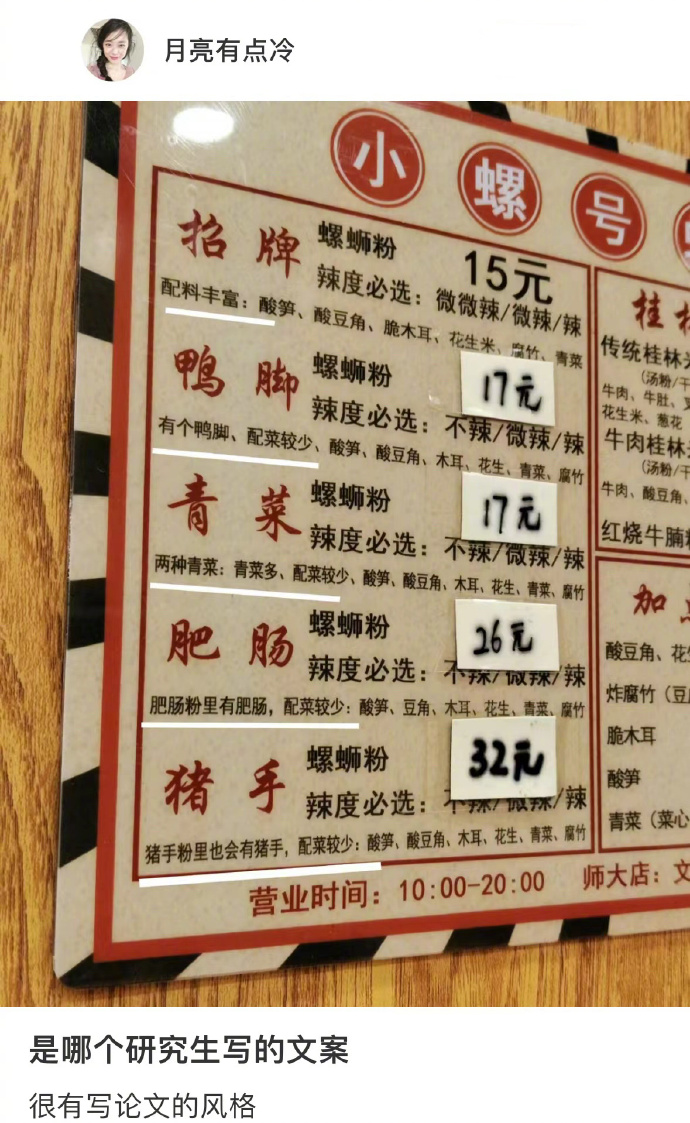 月亮有点冷
小螺号
招牌 螺蛳粉 15元
辣度必选：微微辣/微辣/辣
配料丰富：酸笋、酸豆角、脆木耳、花生米、腐竹、青菜
鸭脚 螺蛳粉 17元
辣度必选：不辣/微辣/辣
有个鸭脚、配菜较少、酸笋、酸豆角、木耳、花生、青菜、腐竹
青菜 螺蛳粉 17元
辣度必选：不辣/微辣/辣
两种青菜：青菜多、配菜较少、酸笋、酸豆角、木耳、花生、青菜、腐竹
肥肠 螺蛳粉 26元
辣度必选：不辣/微辣/辣
肥肠粉里有肥肠，配菜较少：酸笋、豆角、木耳、花生、青菜、腐竹
猪手 螺蛳粉 32元
辣度必选：不辣/微辣/辣
猪手粉里也会有猪手，配菜较少：酸笋、酸豆角、木耳、花生、青菜、腐竹
桂
传统桂林
（汤粉/干
牛肉、牛肚、
花生米、葱花
牛肉桂林
（汤粉/干
牛肉、酸豆角、
红烧牛腩
加
酸豆角、花
炸腐竹（豆
脆木耳
酸笋
青菜（菜心
营业时间：10:00-20:00 师大店：文
是哪个研究生写的文案
很有写论文的风格